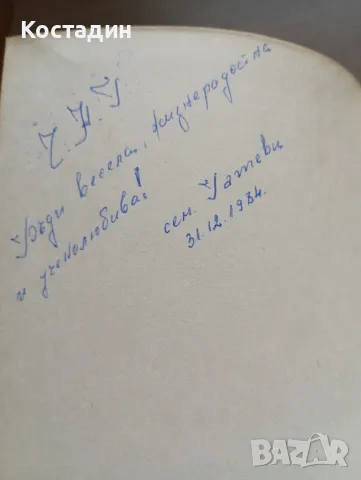 Костадин
Ч.Н.Г
Бъди весела, жизнерадостна
и ученолюбива!
сем. Гатеви
31.12.1984.
BAZAR